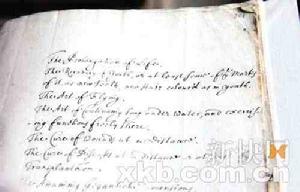 The Prolongation of Life.
The Recovery of Youth, or at least some of the Marks
of it, as new Teeth, new Hair colour'd as in youth.
The Art of Flying.
The Art of Continuing long under water, and exercising
functions freely there.
The Cure of Wounds at a Distance.
The Cure of Diseases at a distance or at
Transplantation.
The Attaining Gigantick Dimensions.
新快网
www.xkb.com.cn